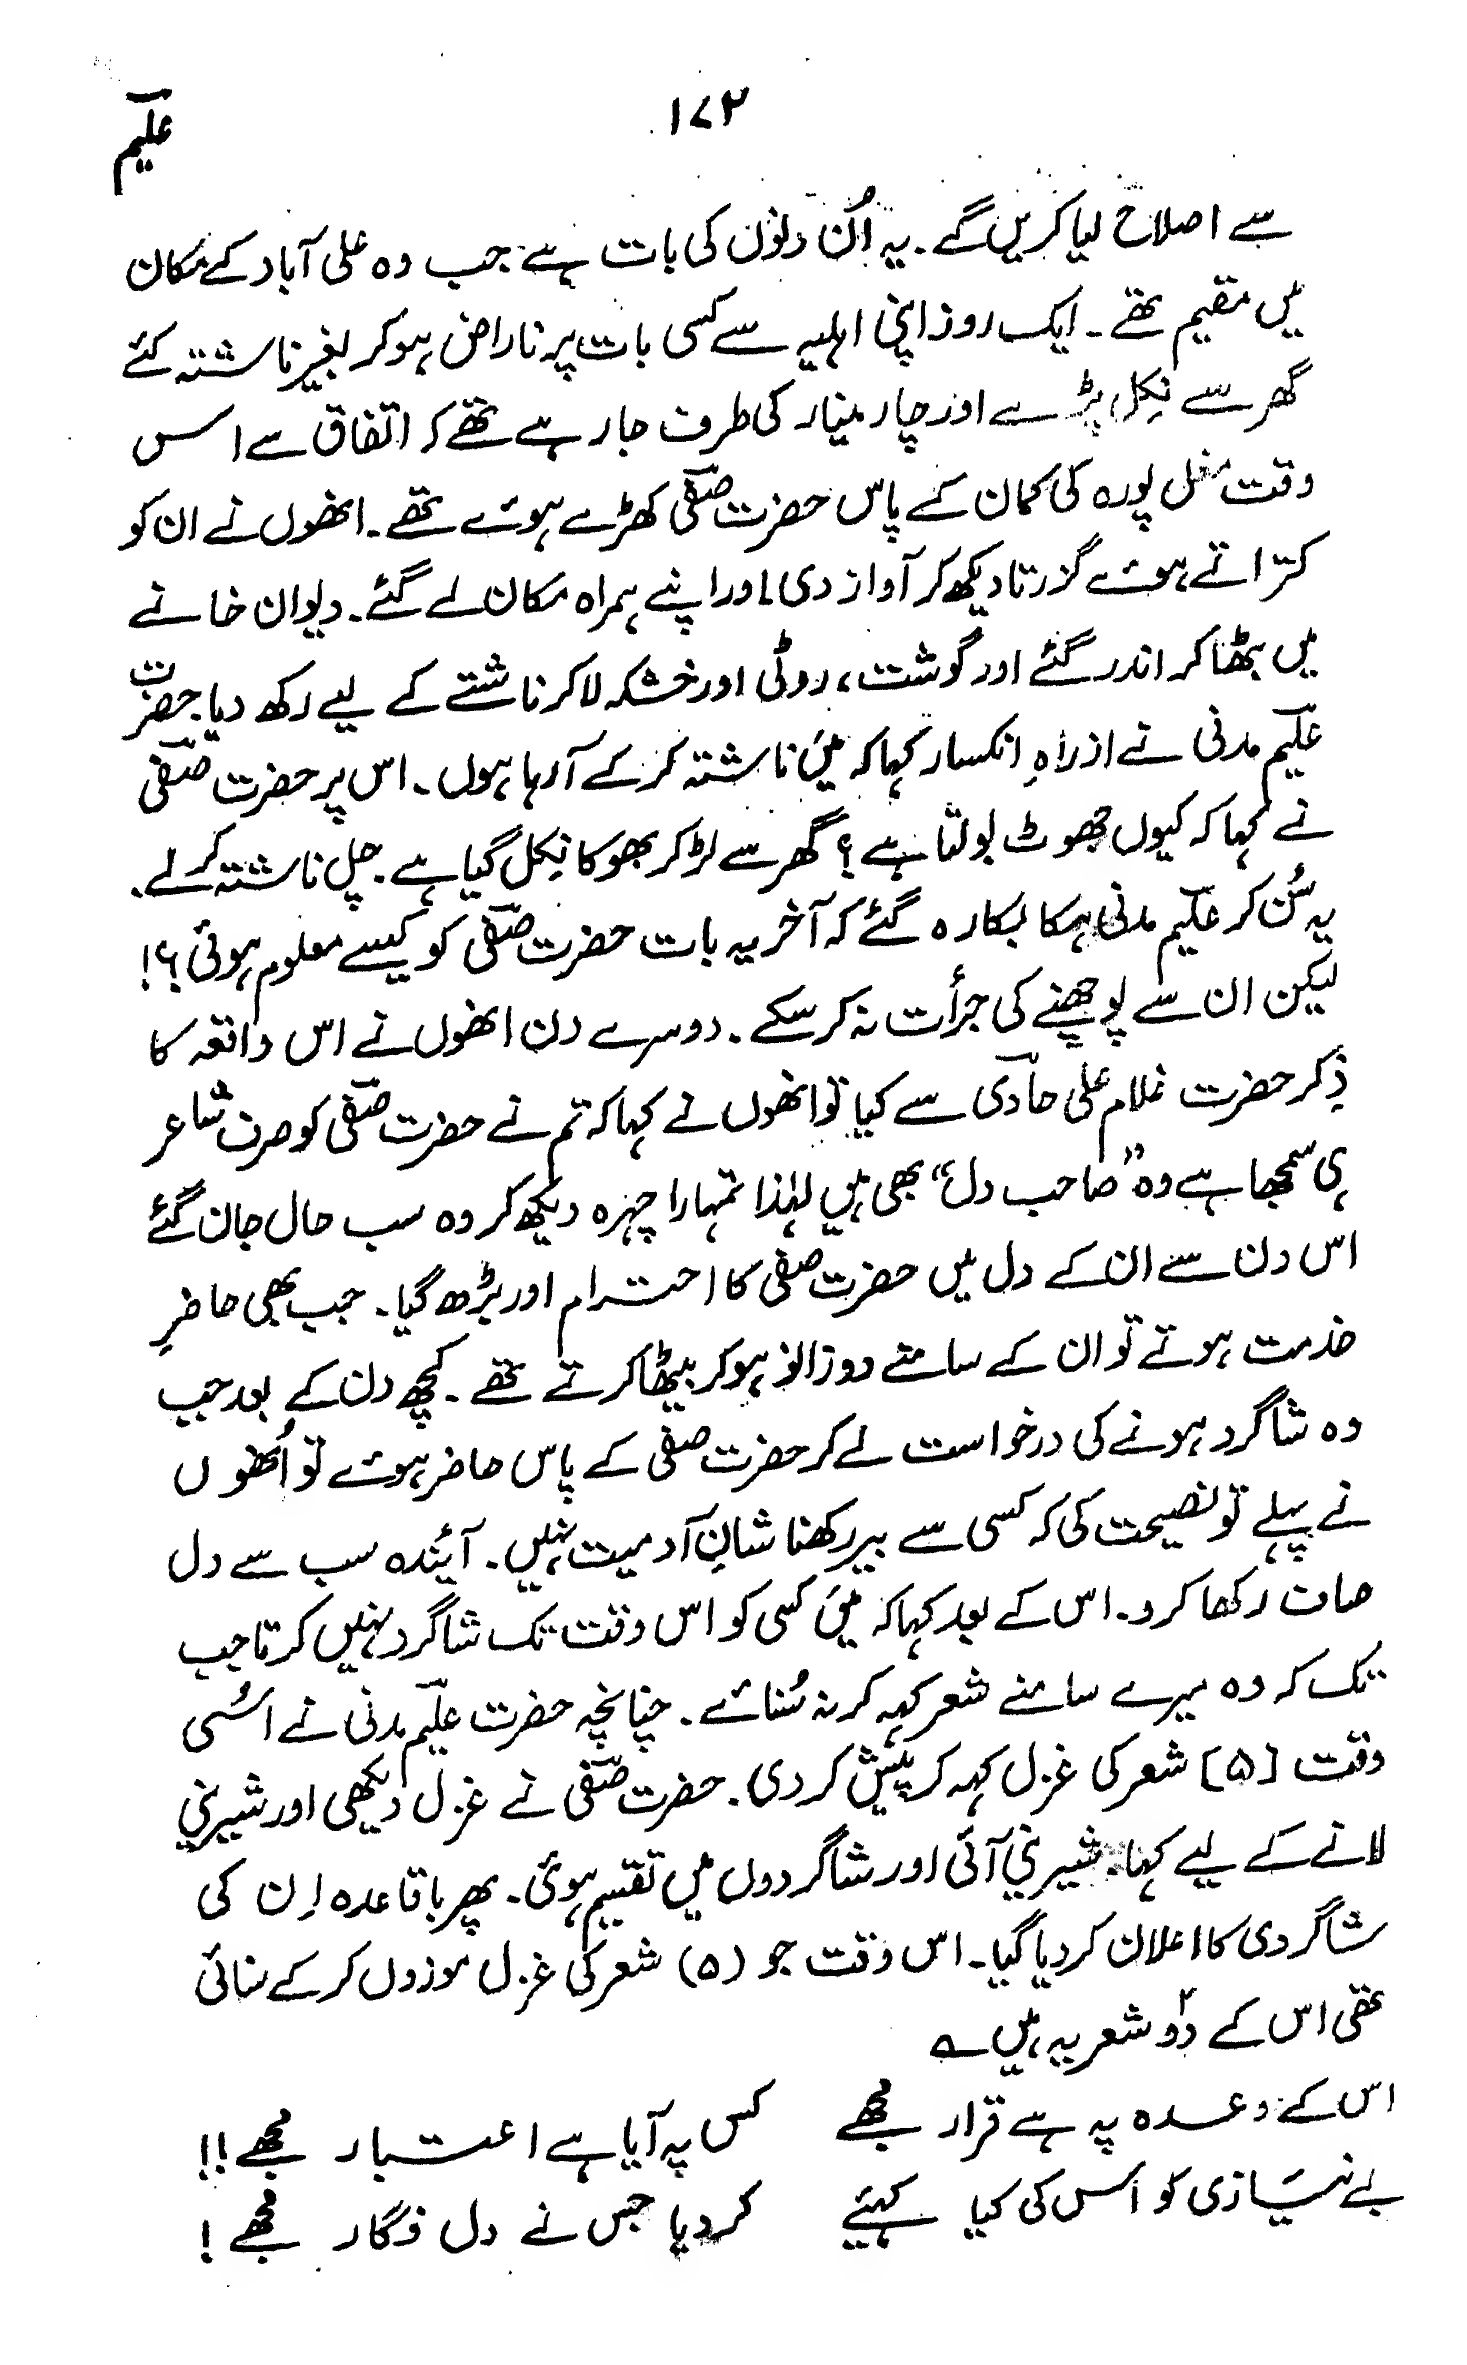 ۱۷۲
علیم
سے اصلاح لیا کریں گے ۔ یہ اُن دنوں کی بات ہے جب وہ علی آباد کے مکان
میں مقیم تھے ۔ ایک روز اپنی اہلیہ سے کسی بات پر ناراض ہوکر بغیر ناشتہ کئے
گھر سے نِکل پڑے اور چار مینار کی طرف جا رہے تھے کہ اتفاق سے اس
وقت مغل پورہ کی کمان کے پاس حضرت صفؔی کھڑے ہوئے تھے ۔ انھوں نے ان کو
کتراتے ہوئے گزرتا دیکھ کر آواز دی اور اپنے ہمراہ مکان لے گئے ۔ دیوان خانے
میں بٹھا کر اندر گئے اور گوشت ، روٹی اور خشکہ لا کر ناشتے کے لیے رکھ دیا ۔ حضرت
علیؔم مدنی نے ازراہِ انکسار کہا کہ میں ناشتہ کر کے آرہا ہوں ۔ اس پر حضرت صفؔی
نے کہا کہ کیوں جھوٹ بولتا ہے ؟ گھر سے لڑکر بھوکا نِکل گیا ہے ۔ چل ناشتہ کرلے ۔
یہ سُن کر علیؔم مدنی ہکا بکا رہ گئے کہ آخر یہ بات حضرت صفؔی کو کیسے معلوم ہوئی ؟!
لیکن ان سے پوچھنے کی جرأت نہ کر سکے ۔ دوسرے دن انھوں نے اس واقعہ کا
ذِکر حضرت غلام علی حاؔدی سے کیا تو انھوں نے کہا کہ تم نے حضرت صفؔی کو صرف شاعر
ہی سمجھا ہے وہ ”صاحب دل“ بھی ہیں لہٰذا تمہارا چہرہ دیکھ کر وہ سب حال جان گئے
اس دن سے ان کے دل میں حضرت صفی کا احترام اور بڑھ گیا ۔ جب بھی حاضرِ
خدمت ہوتے تو ان کے سامنے دو زانو ہوکر بیٹھا کرتے تھے ۔ کچھ دن کے بعد جب
وہ شاگرد ہونے کی درخواست لے کر حضرت صفی کے پاس حاضر ہوئے تو اُنھوں
نے پہلے تو نصیحت کی کہ کسی سے بیر رکھنا شانِ آدمیت نہیں ۔ آئندہ سب سے دل
صاف رکھا کرو ۔ اس کے بعد کہا کہ میں کسی کو اس وقت تک شاگرد نہیں کرتا جب
تک کہ وہ میرے سامنے شعر کہہ کر نہ سُنائے ۔ چنانچہ حضرت علیؔم مدنی نے اُسی
وقت [۵] شعر کی غزل کہہ کر پیش کر دی ۔ حضرت صفؔی نے غزل دیکھی اور شیرینی
لانے کے لیے کہا ۔ شیرینی آئی اور شاگردوں میں تقسیم ہوئی ۔ پھر باقاعدہ اِن کی
شاگردی کا اعلان کر دیا گیا ۔ اس وقت جو (۵) شعر کی غزل موزوں کر کے سنائی
تھی اس کے دو۲ شعر یہ ہیں ؎
اس کے وعدہ پہ ہے قرار مجھے کس پہ آیا ہے اعتبار مجھے !!
بے نیازی کو اُس کی کیا کہیئے کر دیا جس نے دل فگار مجھے !